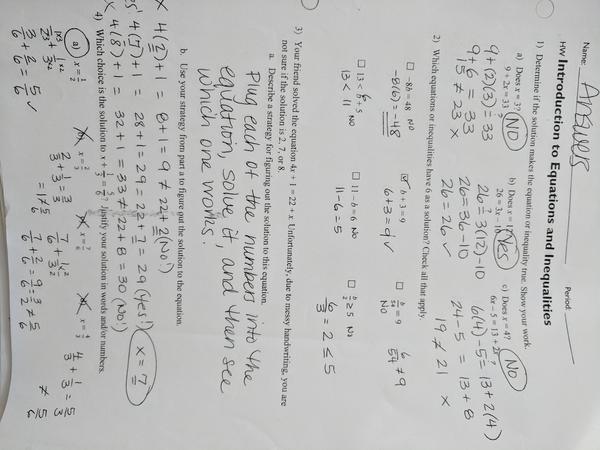 Name: Answers
Period:
HW Introduction to Equations and Inequalities
1) Determine if the solution makes the equation or inequality true. Show your work.
a) Does x = 3? No
9 + 2x = 33
9+(2)(3) = 33
9 + 6 = 33
15 ≠ 23 x
b) Does x = Yes
26 = 3x - 10
26 = 3(12) - 10
26 = 36 - 10
26 = 26 ✓
c) Does x = 4? No
6x - 5 = 13 + 2x
6(4) - 5 = 13 + 2(4)
24 - 5 = 13 + 8
19 ≠ 21 x
2) Which equations or inequalities have 6 as a solution? Check all that apply.
☐ -8b = 48 No
-8(6) = -48
☑ b + 3 = 9
6 + 3 = 9 ✓
☐ = 9
No
≠ 9
☐ 13 < b + 5
13 < 11 No
☐ 11 - b = 6 No
11 - 6 = 5
☐ ≥ 5 No
6/3 = 2 ≤ 5
3) Your friend solved the equation 4x + 1 = 22 + x. Unfortunately, due to messy handwriting, you are
not sure if the solution is 2, 7, or 8.
a. Describe a strategy for figuring out the solution to this equation.
Plug each of the numbers into the
equation, solve it, and then see
which one works.
b. Use your strategy from part a to figure out the solution to the equation.
x 4(2) + 1 = 8 + 1 = 9 ≠ 22 + 2 (No!)
4(7) + 1 = 28 + 1 = 29 = 22 + 7 = 29 (Yes!) x = 7
x 4(8) + 1 = 32 + 1 = 33 ≠ 22 + 8 = 30 (No!)
4) Which choice is the solution to x + 1/3 = 5/6? Justify your solution in words and/or numbers.
a) x = 1/2
x = 2/3
x = 7/6
x = 4/3
3/6 + 2/6 = 5/6 ✓
2/3 + 1/3 = 3/3
= 1 ≠ 5/6
7/6 + 2/6 = 9/6 = 3/2 ≠ 5/6
4/3 + 1/3 = 5/3
≠ 5/6